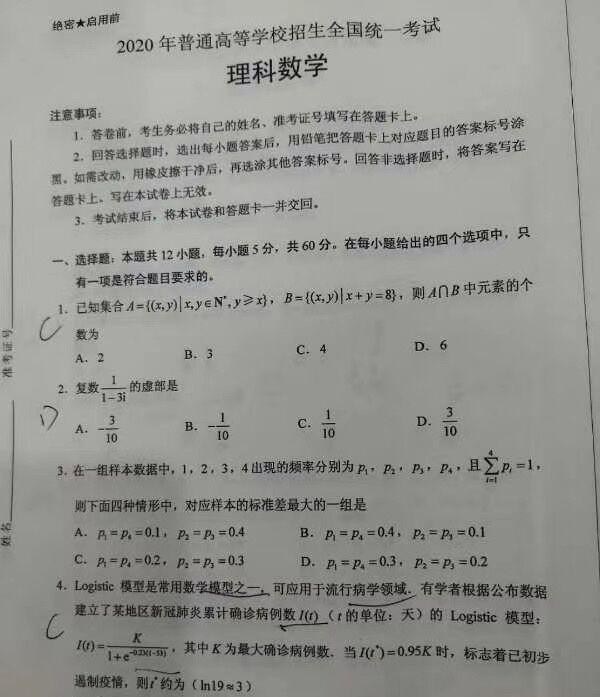 绝密★启用前
2020年普通高等学校招生全国统一考试
理科数学
注意事项：
1．答卷前，考生务必将自己的姓名、准考证号填写在答题卡上。
2．回答选择题时，选出每小题答案后，用铅笔把答题卡上对应题目的答案标号涂
黑。如需改动，用橡皮擦干净后，再选涂其他答案标号。回答非选择题时，将答案写在
答题卡上、写在本试卷上无效。
3．考试结束后，将本试卷和答题卡一并交回。
一、选择题：本题共12小题，每小题5分，共60分。在每小题给出的四个选项中，只
有一项是符合题目要求的。
1．已知集合A={(x,y)|x,y∈N*,y⩾x}，B={(x,y)|x+y=8}，则A∩B中元素的个
C
数为
A．2 B．3 C．4 D．6
2．复数1/(1-3i)的虚部是
D
A．-3/10 B．-1/10 C．1/10 D．3/10
3．在一组样本数据中，1，2，3，4出现的频率分别为p₁，p₂，p₃，p₄，且∑_{i=1}^{4}p_i=1，
则下面四种情形中，对应样本的标准差最大的一组是
A．p₁=p₄=0.1，p₂=p₃=0.4 B．p₁=p₄=0.4，p₂=p₃=0.1
C．p₁=p₄=0.2，p₂=p₃=0.3 D．p₁=p₄=0.3，p₂=p₃=0.2
4．Logistic模型是常用数学模型之一，可应用于流行病学领域．有学者根据公布数据
建立了某地区新冠肺炎累计确诊病例数I(t)（t的单位：天）的Logistic模型：
C
I(t)=K/(1+e^{-0.23(t-53)})，其中K为最大确诊病例数．当I(t*)=0.95K时，标志着已初步
遏制疫情，则t*约为（ln19≈3）
准考证号
姓名